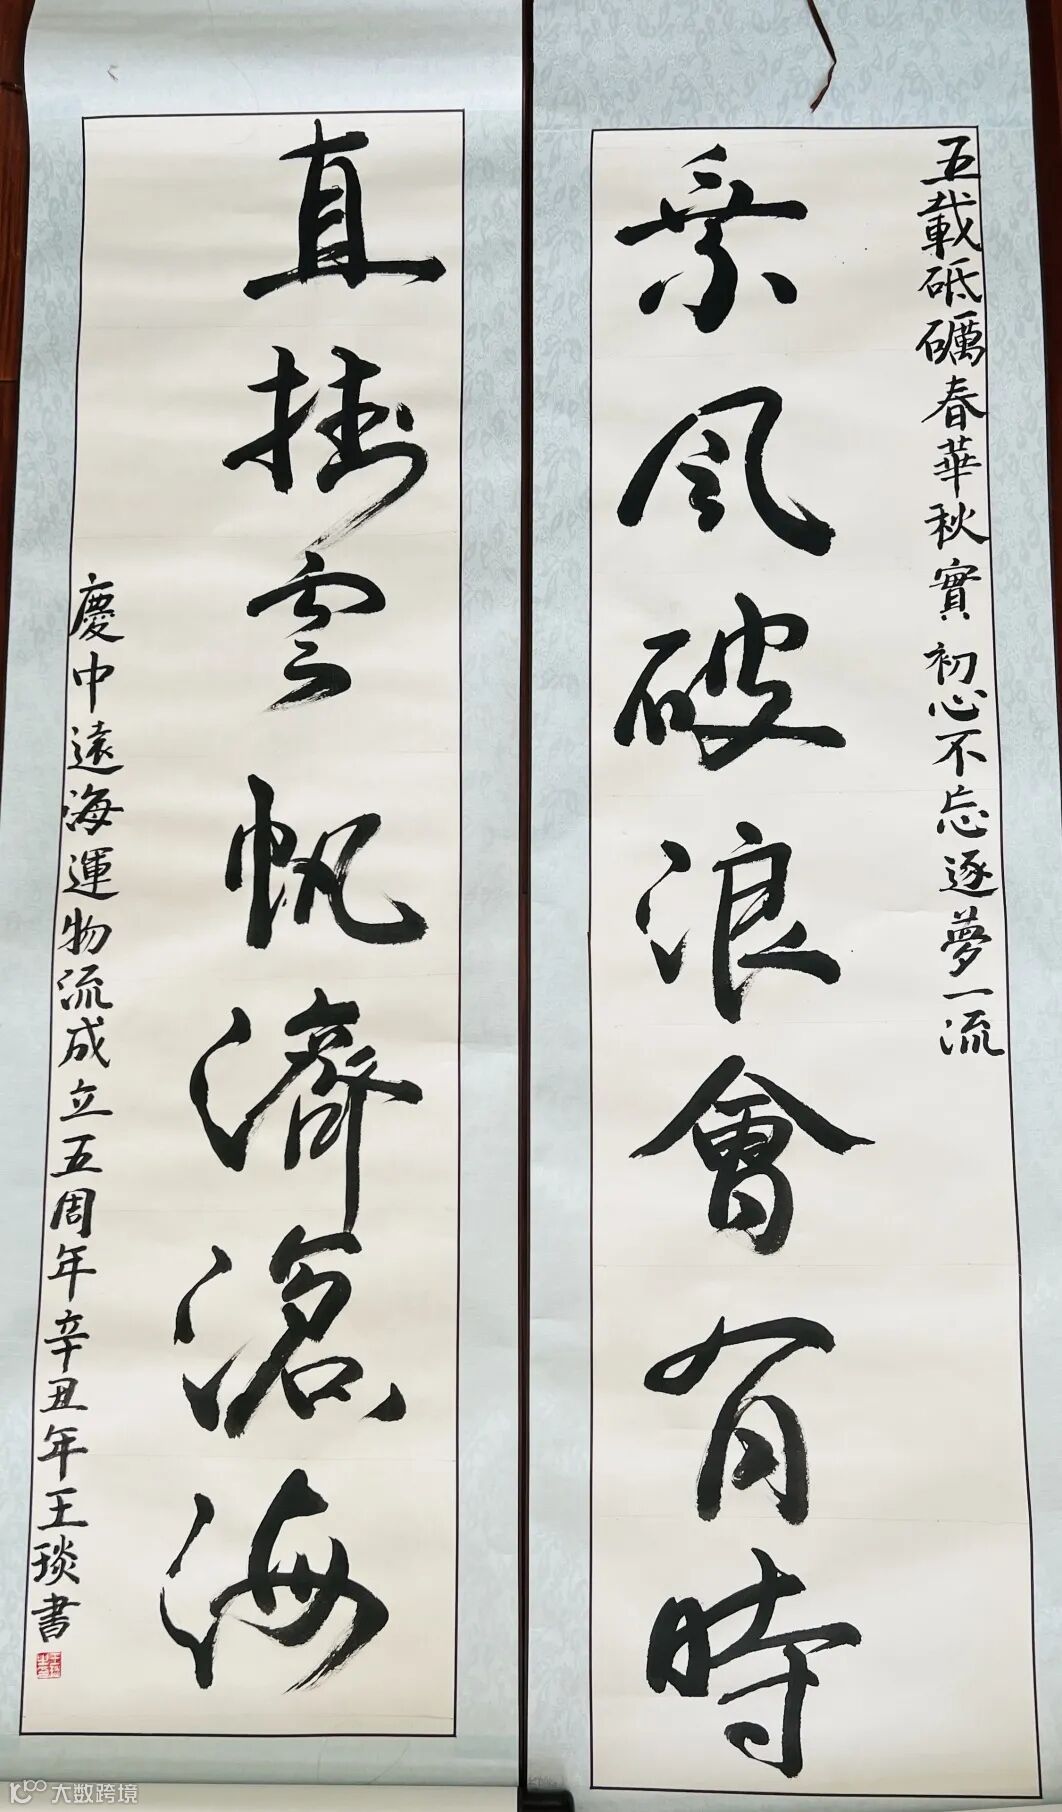 五載砥礪春華秋實初心不忘逐夢一流
乘風破浪會有時
直挂雲帆濟滄海
慶中遠海運物流成立五周年辛丑年王琰書
大数跨境